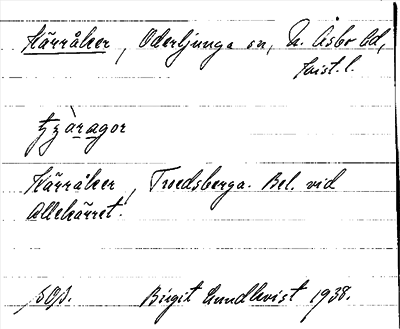 Kärråker, Oderljunga sn, N. Åsbo hd,
Krist. l.
Kärråker, Troedsberga. Bel. vid
Allekärret.
Birgit Lundkvist 1938.